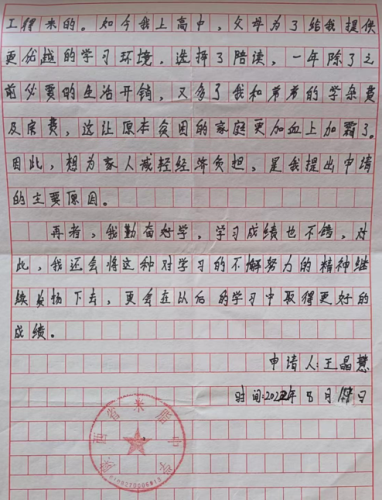 工程来的。如今我上高中,父母为了给我提供
更优越的学习环境,选择了陪读,一年除了之
前必要的生活开销,又多了我和弟弟的学杂费
及房费,这让原本贫困的家庭更加血上加霜了。
因此,想为家人减轻经济负担,是我提出申请
的主要原因。
再者,我勤奋好学,学习成绩也不错,对
此,我还会将这种对学习的不懈努力的精神继
续下去,更会在以后的学习中取得更好的
成绩。
申请人:王晶慧
时间:2022年8月 日